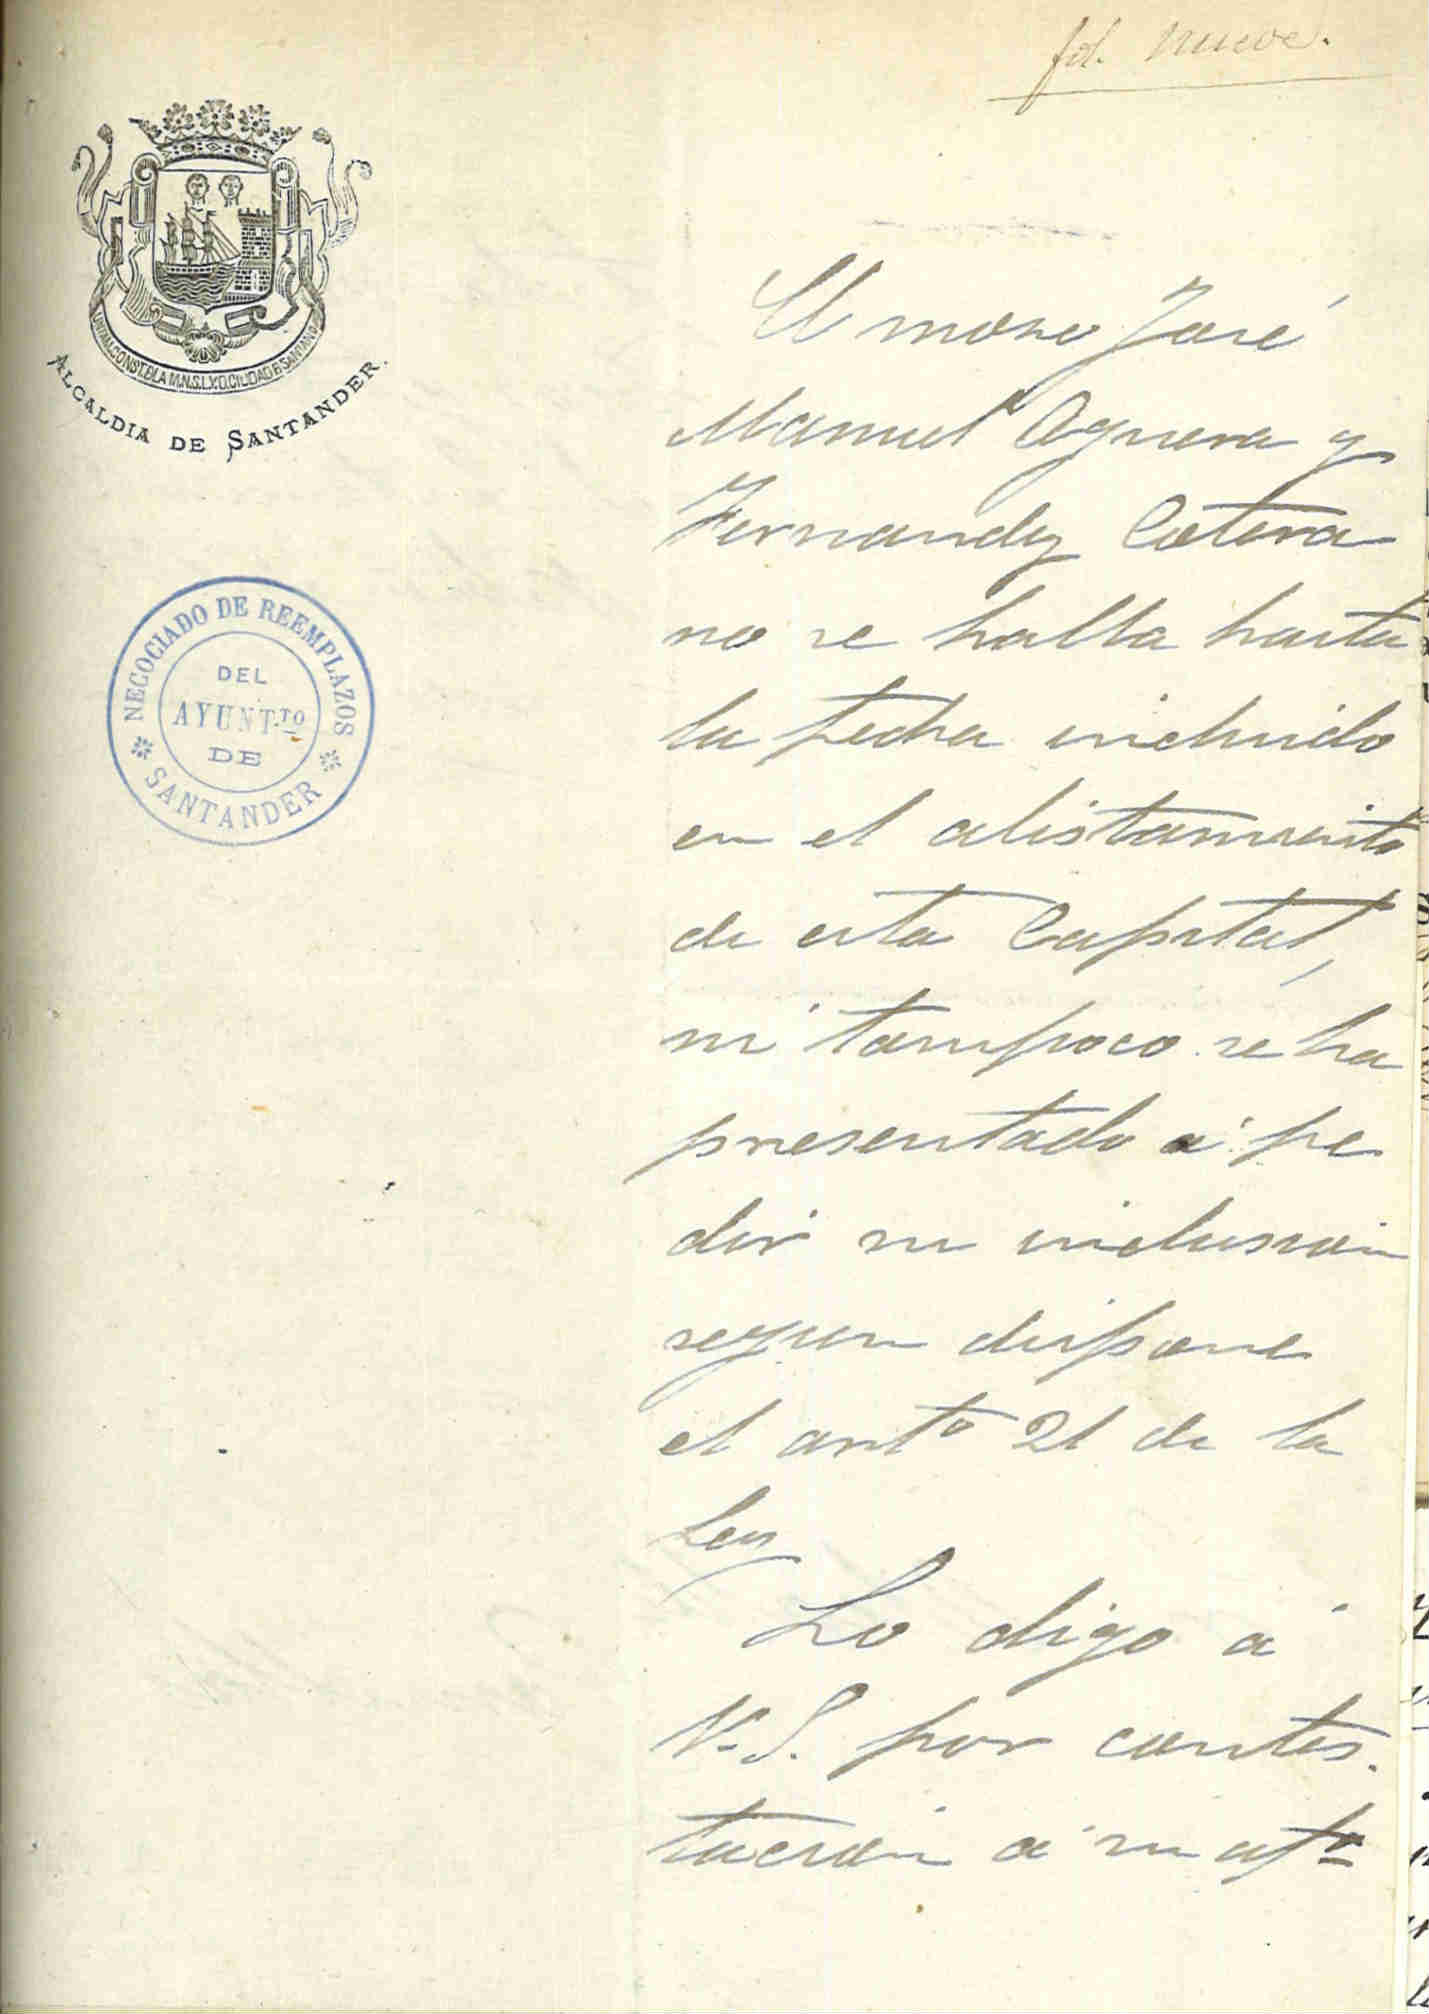 fol. nueve.
AYUNTAM.CONST.DE LA M.N.S.L.Y.D.CIUDAD DE SANTANDER
ALCALDIA DE SANTANDER.
NEGOCIADO DE REEMPLAZOS
DEL
AYUNT.TO
DE
SANTANDER
El mozo José
Manuel Aguera y
Fernandez Cotera
no se halla hasta
la fecha incluido
en el alistamiento
de esta Capital,
ni tampoco se ha
presentado á pe
dir su inclusion
segun dispone
el artº 21 de la
Ley
Lo digo á
V. S. por contes.
tación á su attº